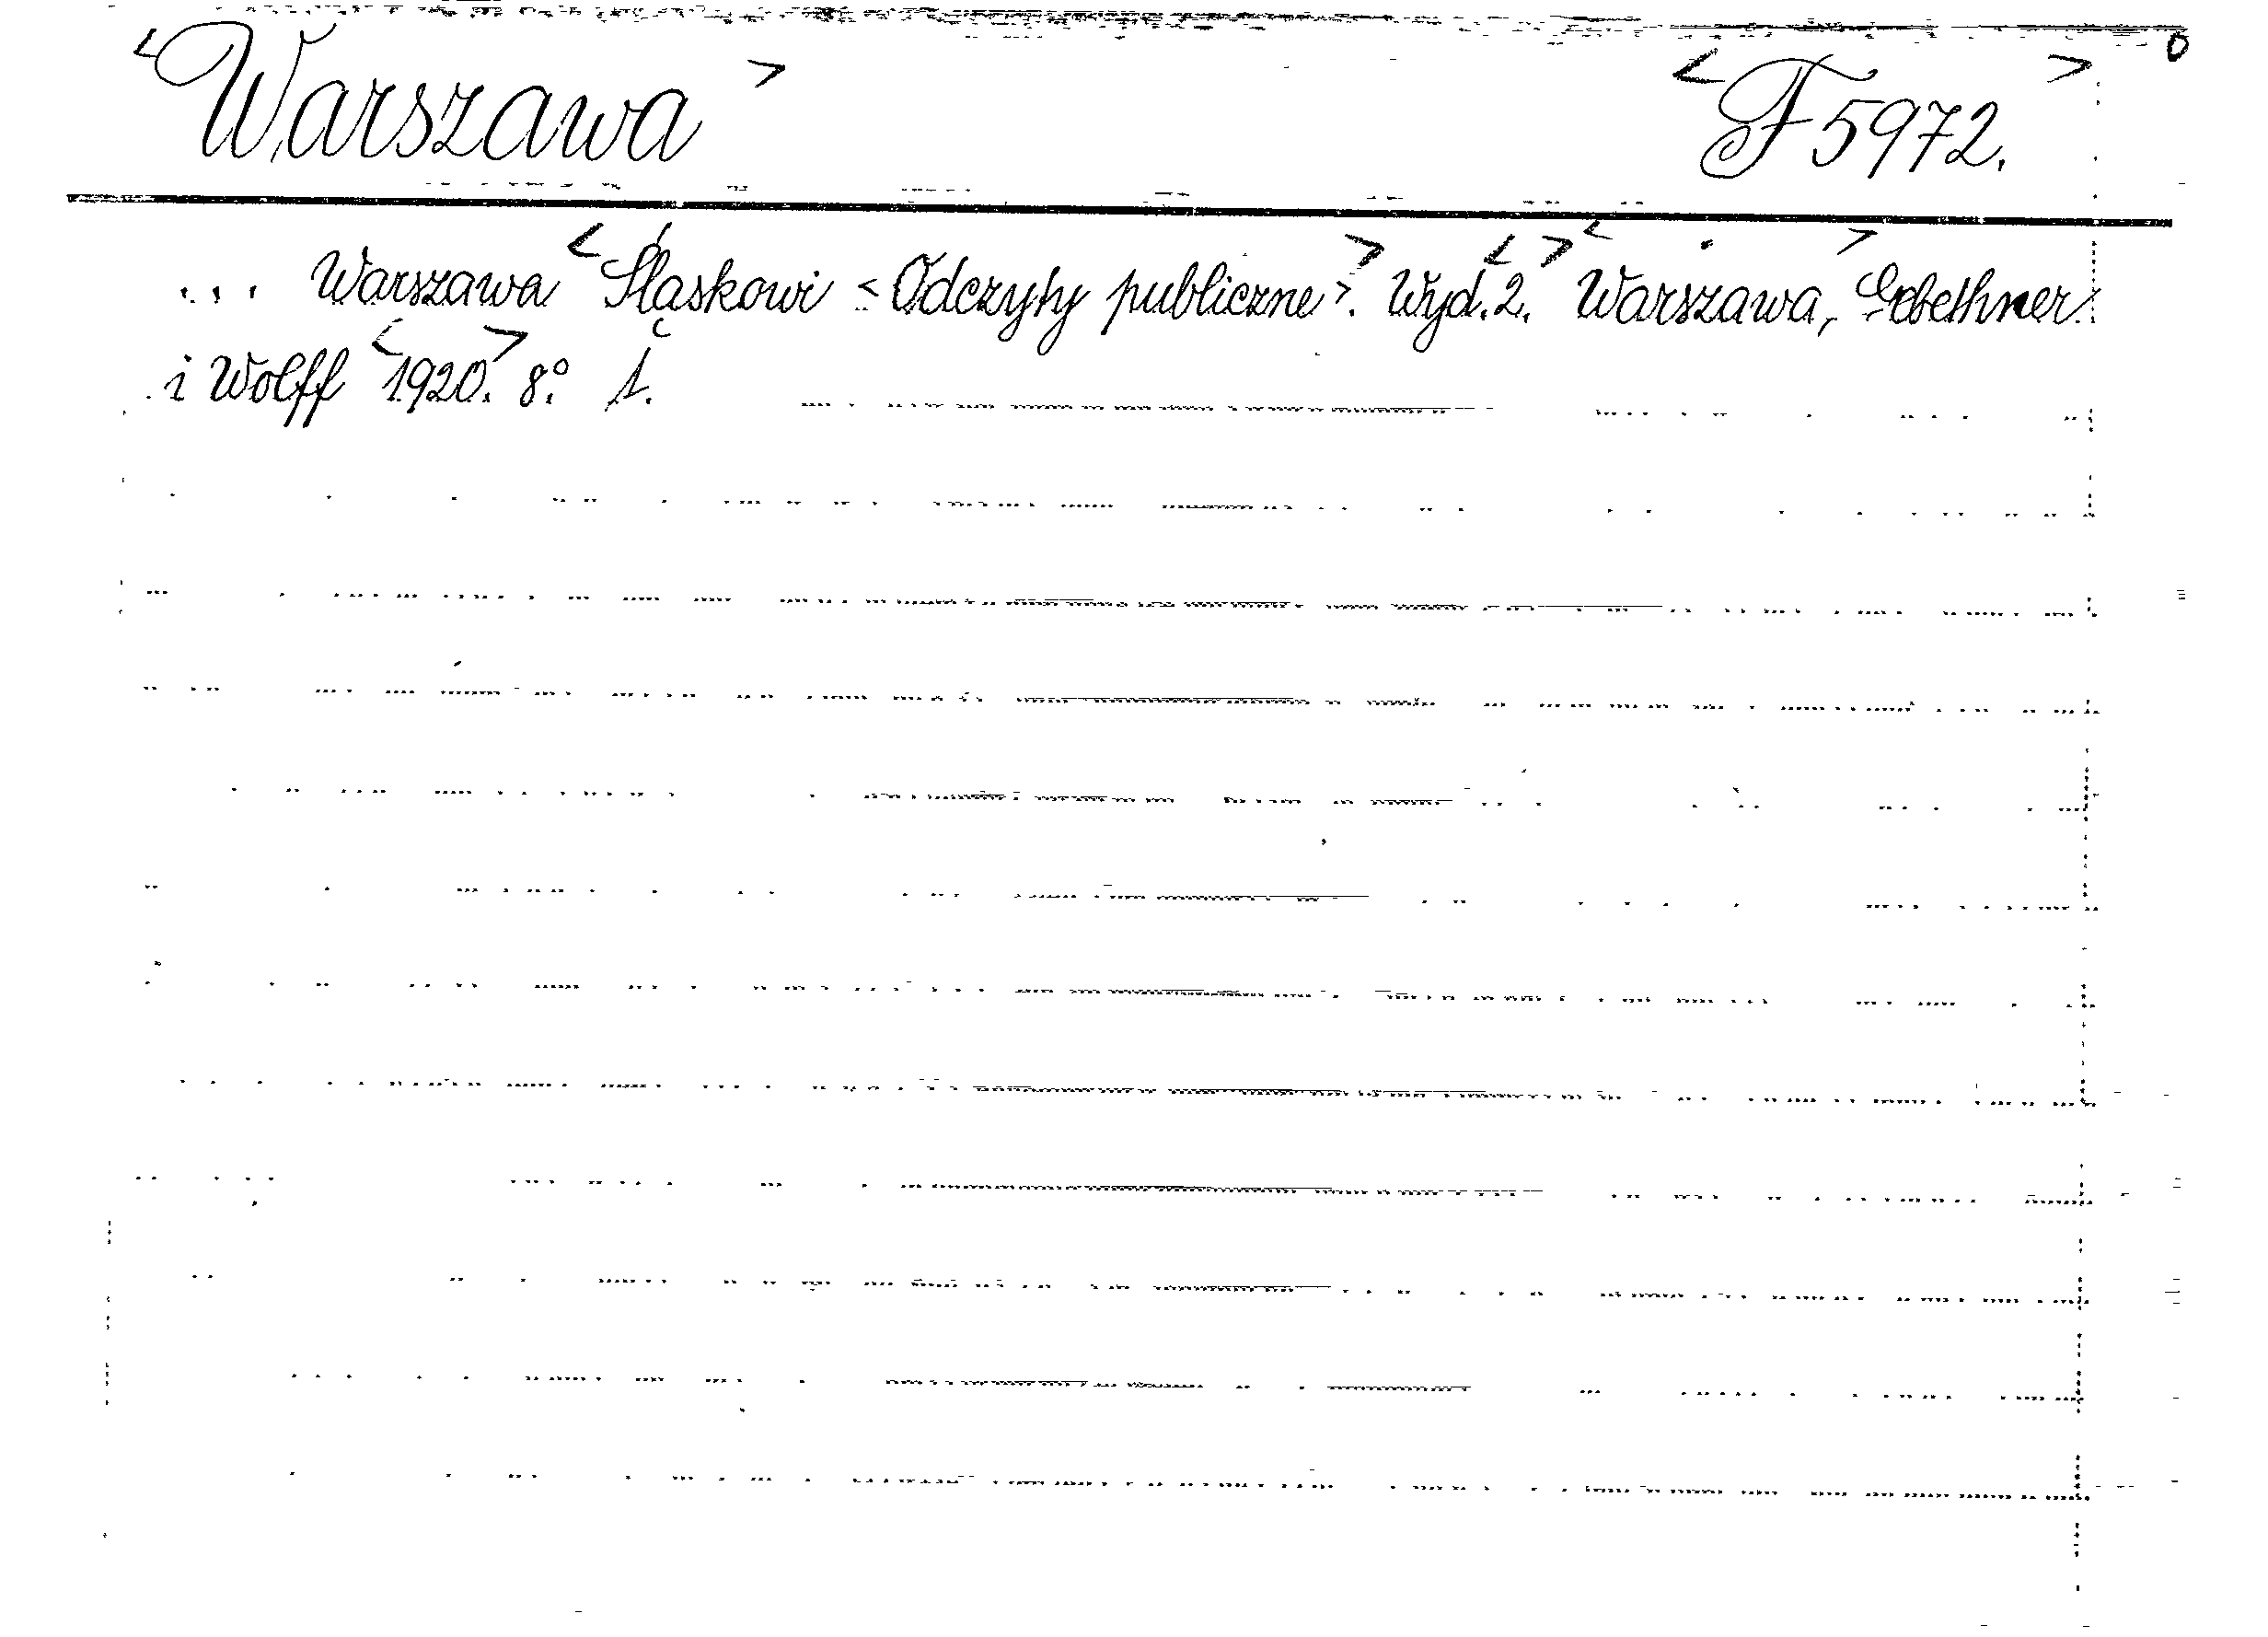 <Warszawa> <F 5972.> 0
... Warszawa <Śląskowi <Odczyty publiczne>.> Wyd. <2.> <Warszawa,> Gebethner
i Wolff <1920.> 8.° 1.